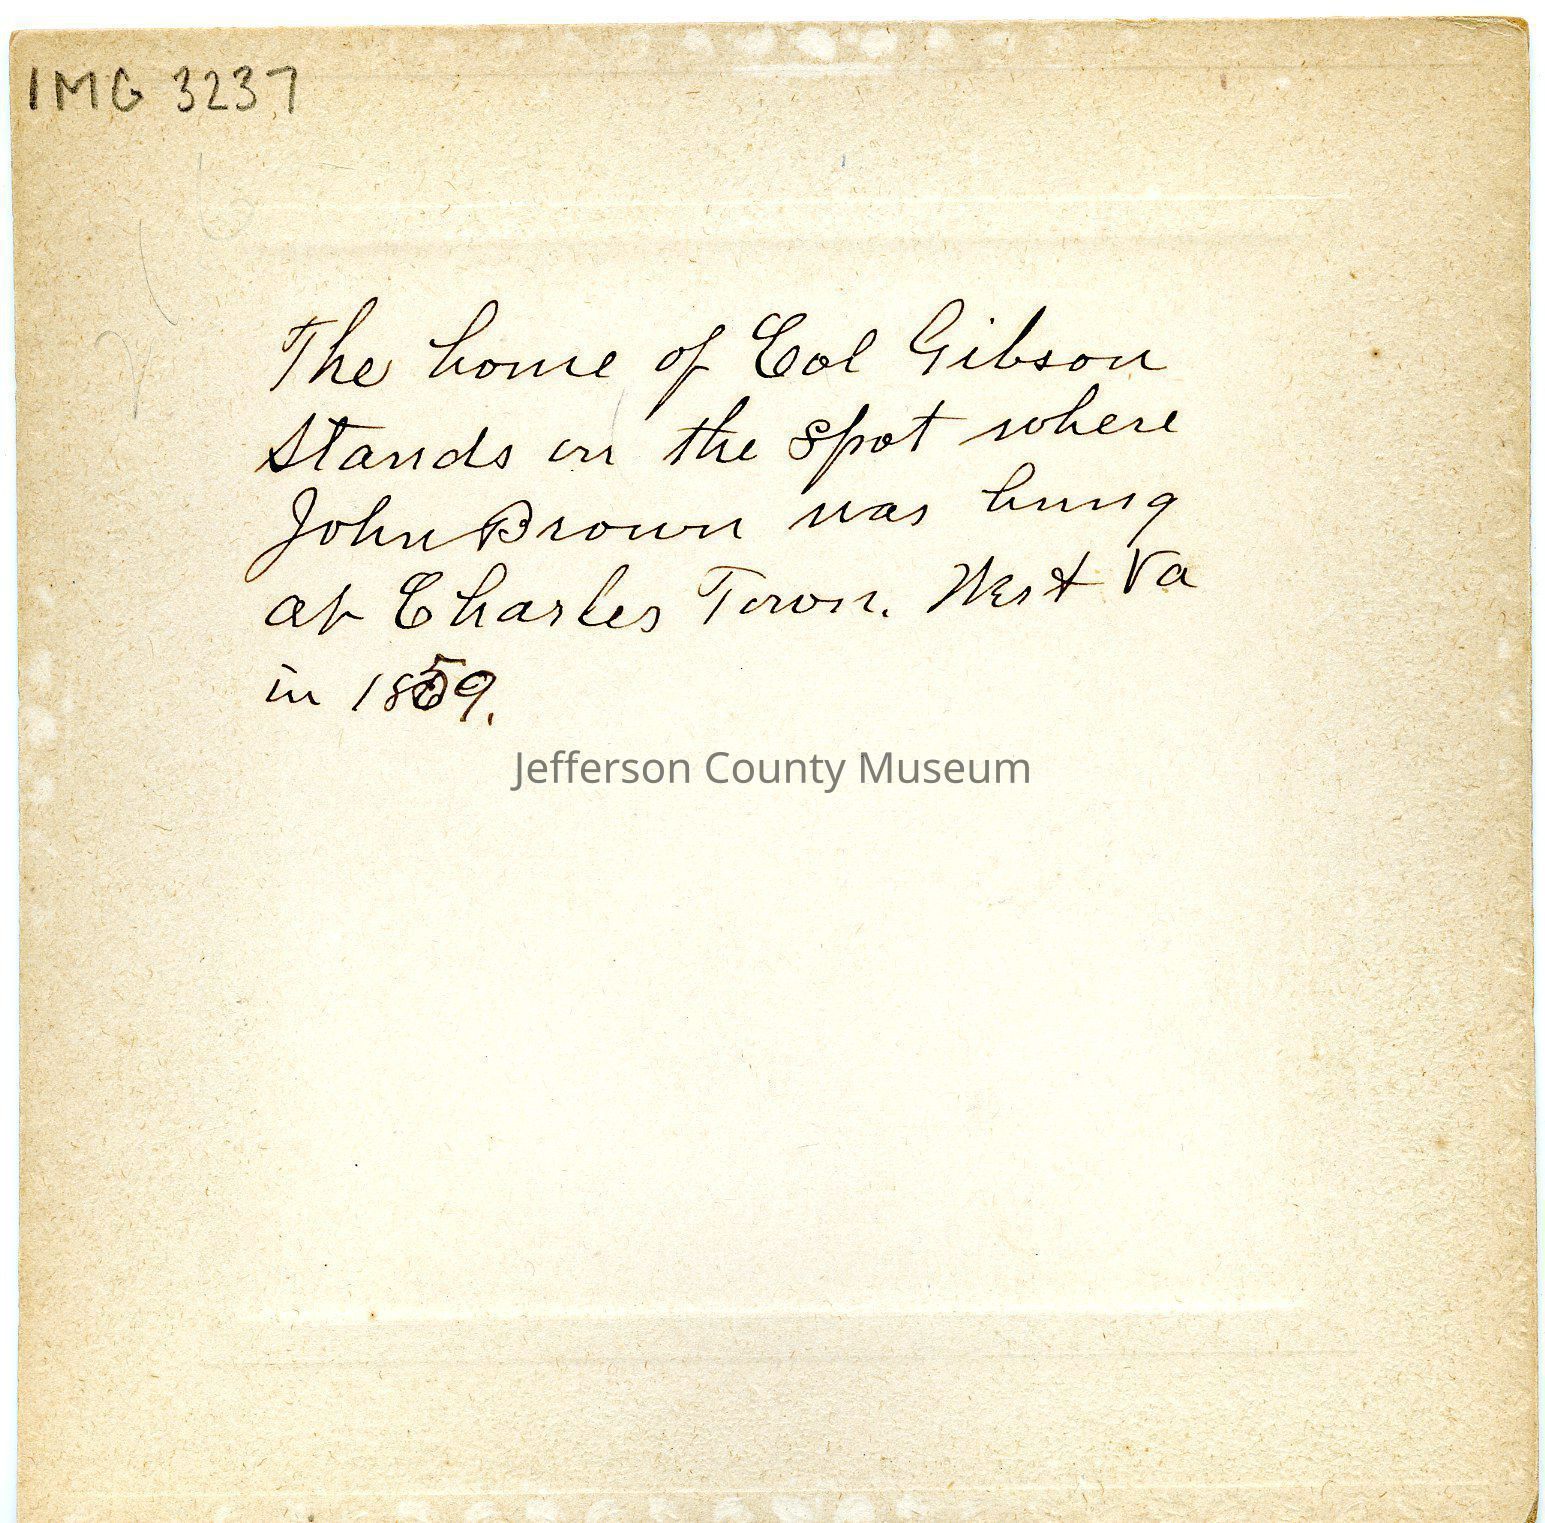 IMG 3237
The home of Col Gibson
Stands on the spot where
John Brown was hung
at Charles Town. West Va
in 1859.
Jefferson County Museum